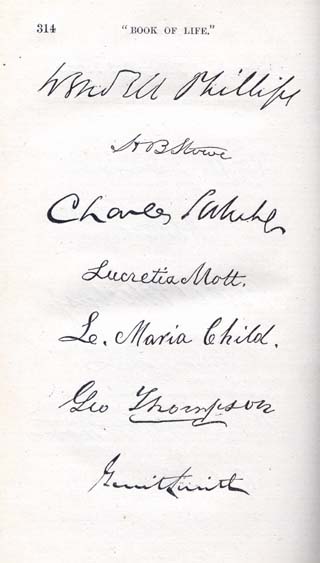 314 "BOOK OF LIFE."
Wendell Phillips
H B Stowe
Charles
Lucretia Mott.
L. Maria Child.
Geo Thompson
Gerrit Smith